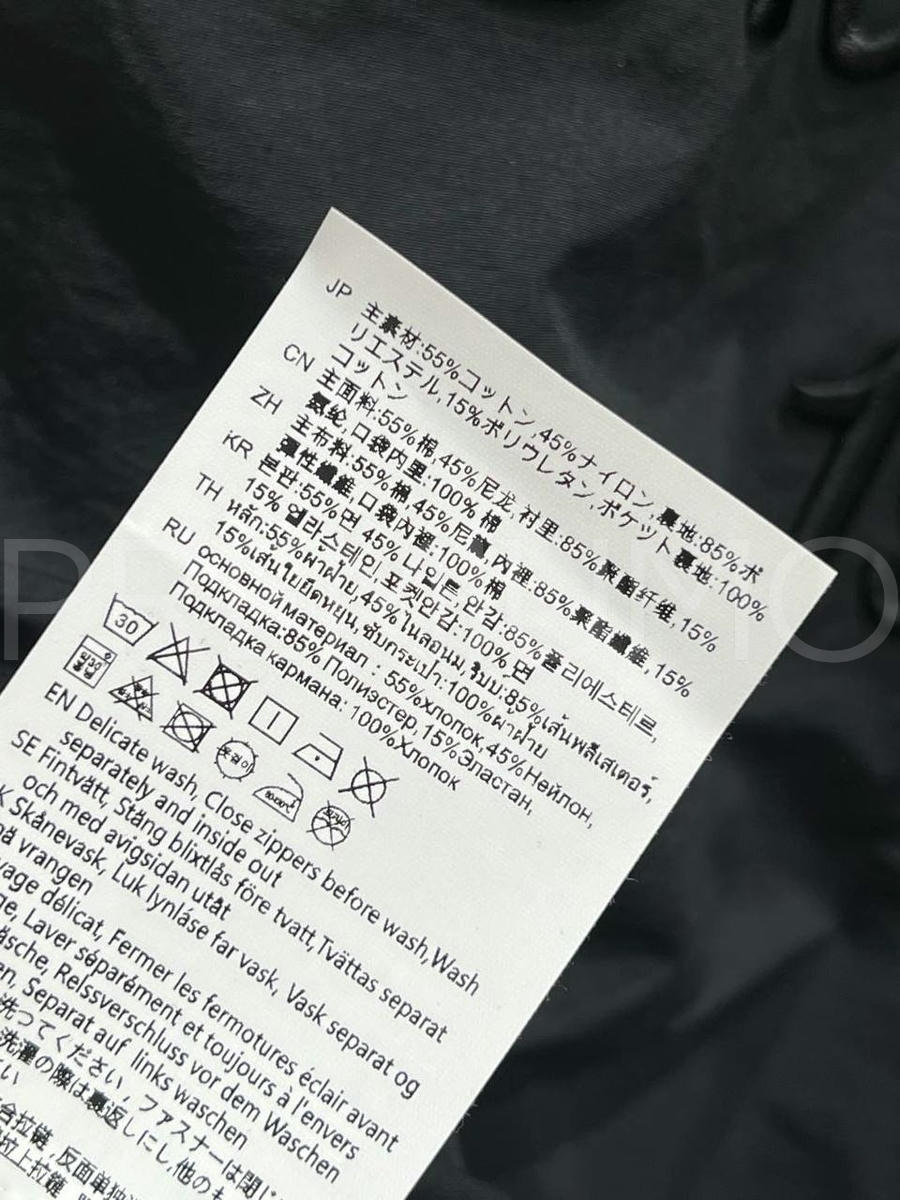 JP 主素材:55%コットン,45%ナイロン,裏地:85%ポ
リエステル,15%ポリウレタン,ポケット裏地:100%
コットン
CN 主面料:55%棉,45%尼龙,衬里:85%聚酯纤维,15%
氨纶,口袋内里:100%棉
ZH 主布料:55%棉,45%尼龍,內裡:85%聚酯纖維,15%
彈性纖維,口袋內裡:100%棉
KR 본판:55%면 45%나일론, 안감:85%폴리에스테르,
15%엘라스테인, 포켓안감:100%면
TH หลัก:55%ผ้าฝ้าย,45%ไนลอนม,ริบบ:85%เส้นพลีเสเตอร์,
15%เส้นใยยืดหยุ่น,ซับกระเป๋า:100%ผ้าฝ้าย
RU основной материал : 55%хлопок,45%Нейлон,
Подкладка:85%Полиэстер,15%Эластан,
Подкладка кармана: 100%Хлопок
30
약30℃
중성
옷걸이
80-120℃
드라이
EN Delicate wash, Close zippers before wash,Wash
separately and inside out
SE Fintvätt, Stäng blixtlås före tvatt,Tvättas separat
och med avigsidan utåt
K Skånevask, Luk lynláse far vask, Vask separat og
på vrangen
vage délicat, Fermer les fermotures éclair avant
ge, Laver séparément et toujours à l'envers
äsche, Relssverschluss vor dem Waschen
en, Separat auf links waschen
洗ってください, ファスナーは閉じ
洗濯の際は裏返しにし,他の
い
合拉链,反面单独
拉上拉鏈